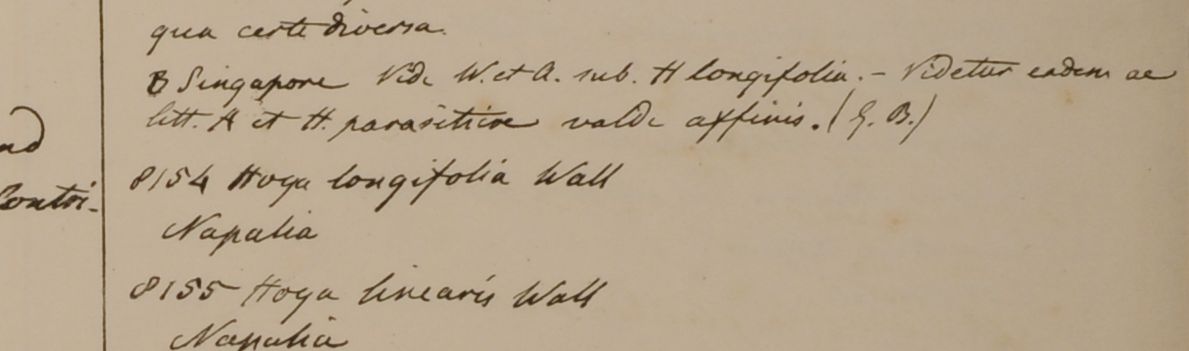 qua certe diversa.
B Singapore Vide W. et A. sub. H longifolia. – Videtur eadem ac
litt. A et H. parasiticae valde affinis. (G. B.)
nd
8154 Hoya longifolia Wall
Contri-
Napalia
8155 Hoya linearis Wall
Napalia